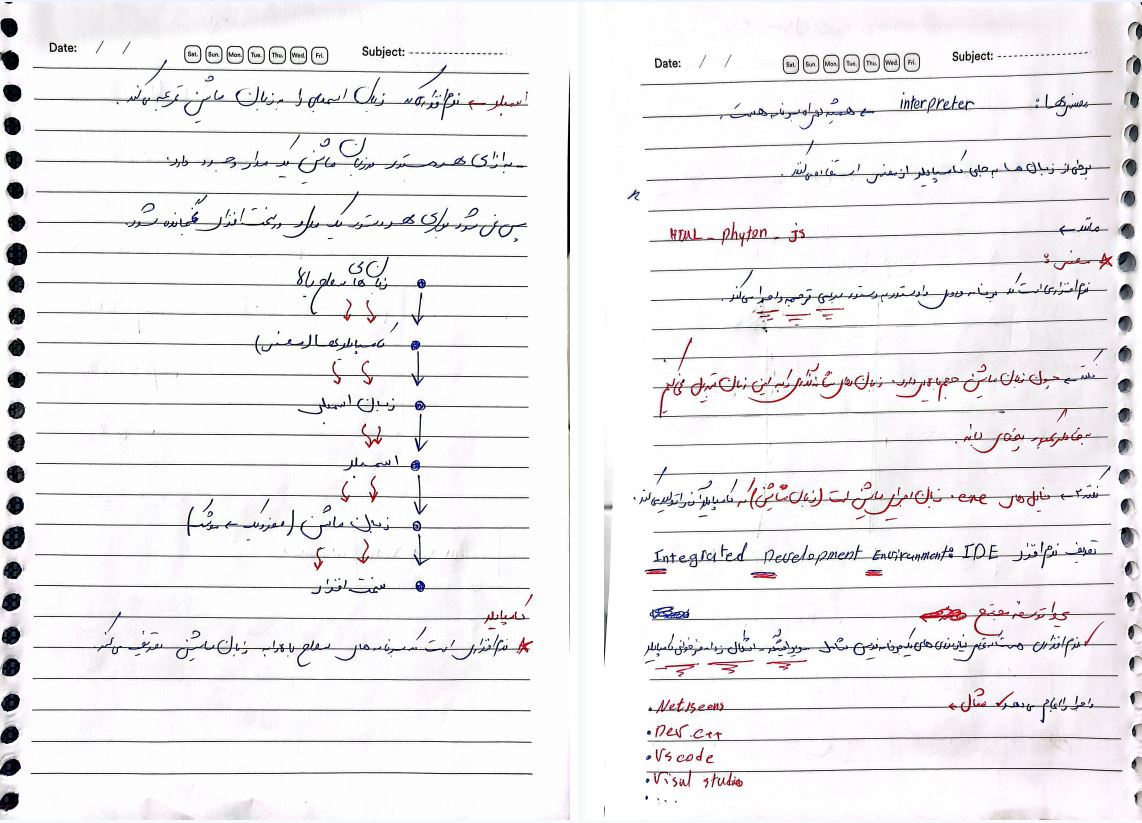 Date: / /
Sat. Sun. Mon. Tue. Thu. Wed. Fri.
Subject:
اسمبلر ← نرم افزاری که زبان اسمبلی را به زبان ماشین ترجمه می‌کند.
به ازای هر دستور در زبان ماشین یک مدار وجود دارد.
پس می شود برای هر دستور یک مدار در سخت افزار گنجانده شود.
زبان های سطح بالا
کامپایلرها (مفسر)
زبان اسمبلی
اسمبلر
زبان ماشین (صفر و یک ←
سخت افزار
کامپایلر
* نرم افزاری است که برنامه های سطح بالا را به زبان ماشین تعریف می کند.
Date: / /
Sat. Sun. Mon. Tue. Thu. Wed. Fri.
Subject:
مفسرها: interpreter ← همیشه همراه برنامه هست.
برخی از زبان ها به جای کامپایلر از مفسر استفاده می کنند.
مانند ←
HTML _ phyton _ js
* مفسر:
نرم افزاری است که برنامه را دستور به دستور بررسی ترجمه و اجرا می کند.
نکته ← چون زبان ماشین حجم دارد، زبان های را به این زبان تبدیل می کنیم
به خاطر
نکته ۲ ← فایل های .exe زبان اجرای ماشین است (زبان ماشین) که کامپایلر آن را تولید می کند.
تعریف نرم افزار Integrated Development Environment: IDE
محیط توسعه مجتمع
نرم افزاری است که تمام نیازمندی های یک برنامه نویس شامل
و اجرا را انجام می دهد مثال ←
• Netbeens
• Dev c++
• Vs code
• Visul studio
• ...